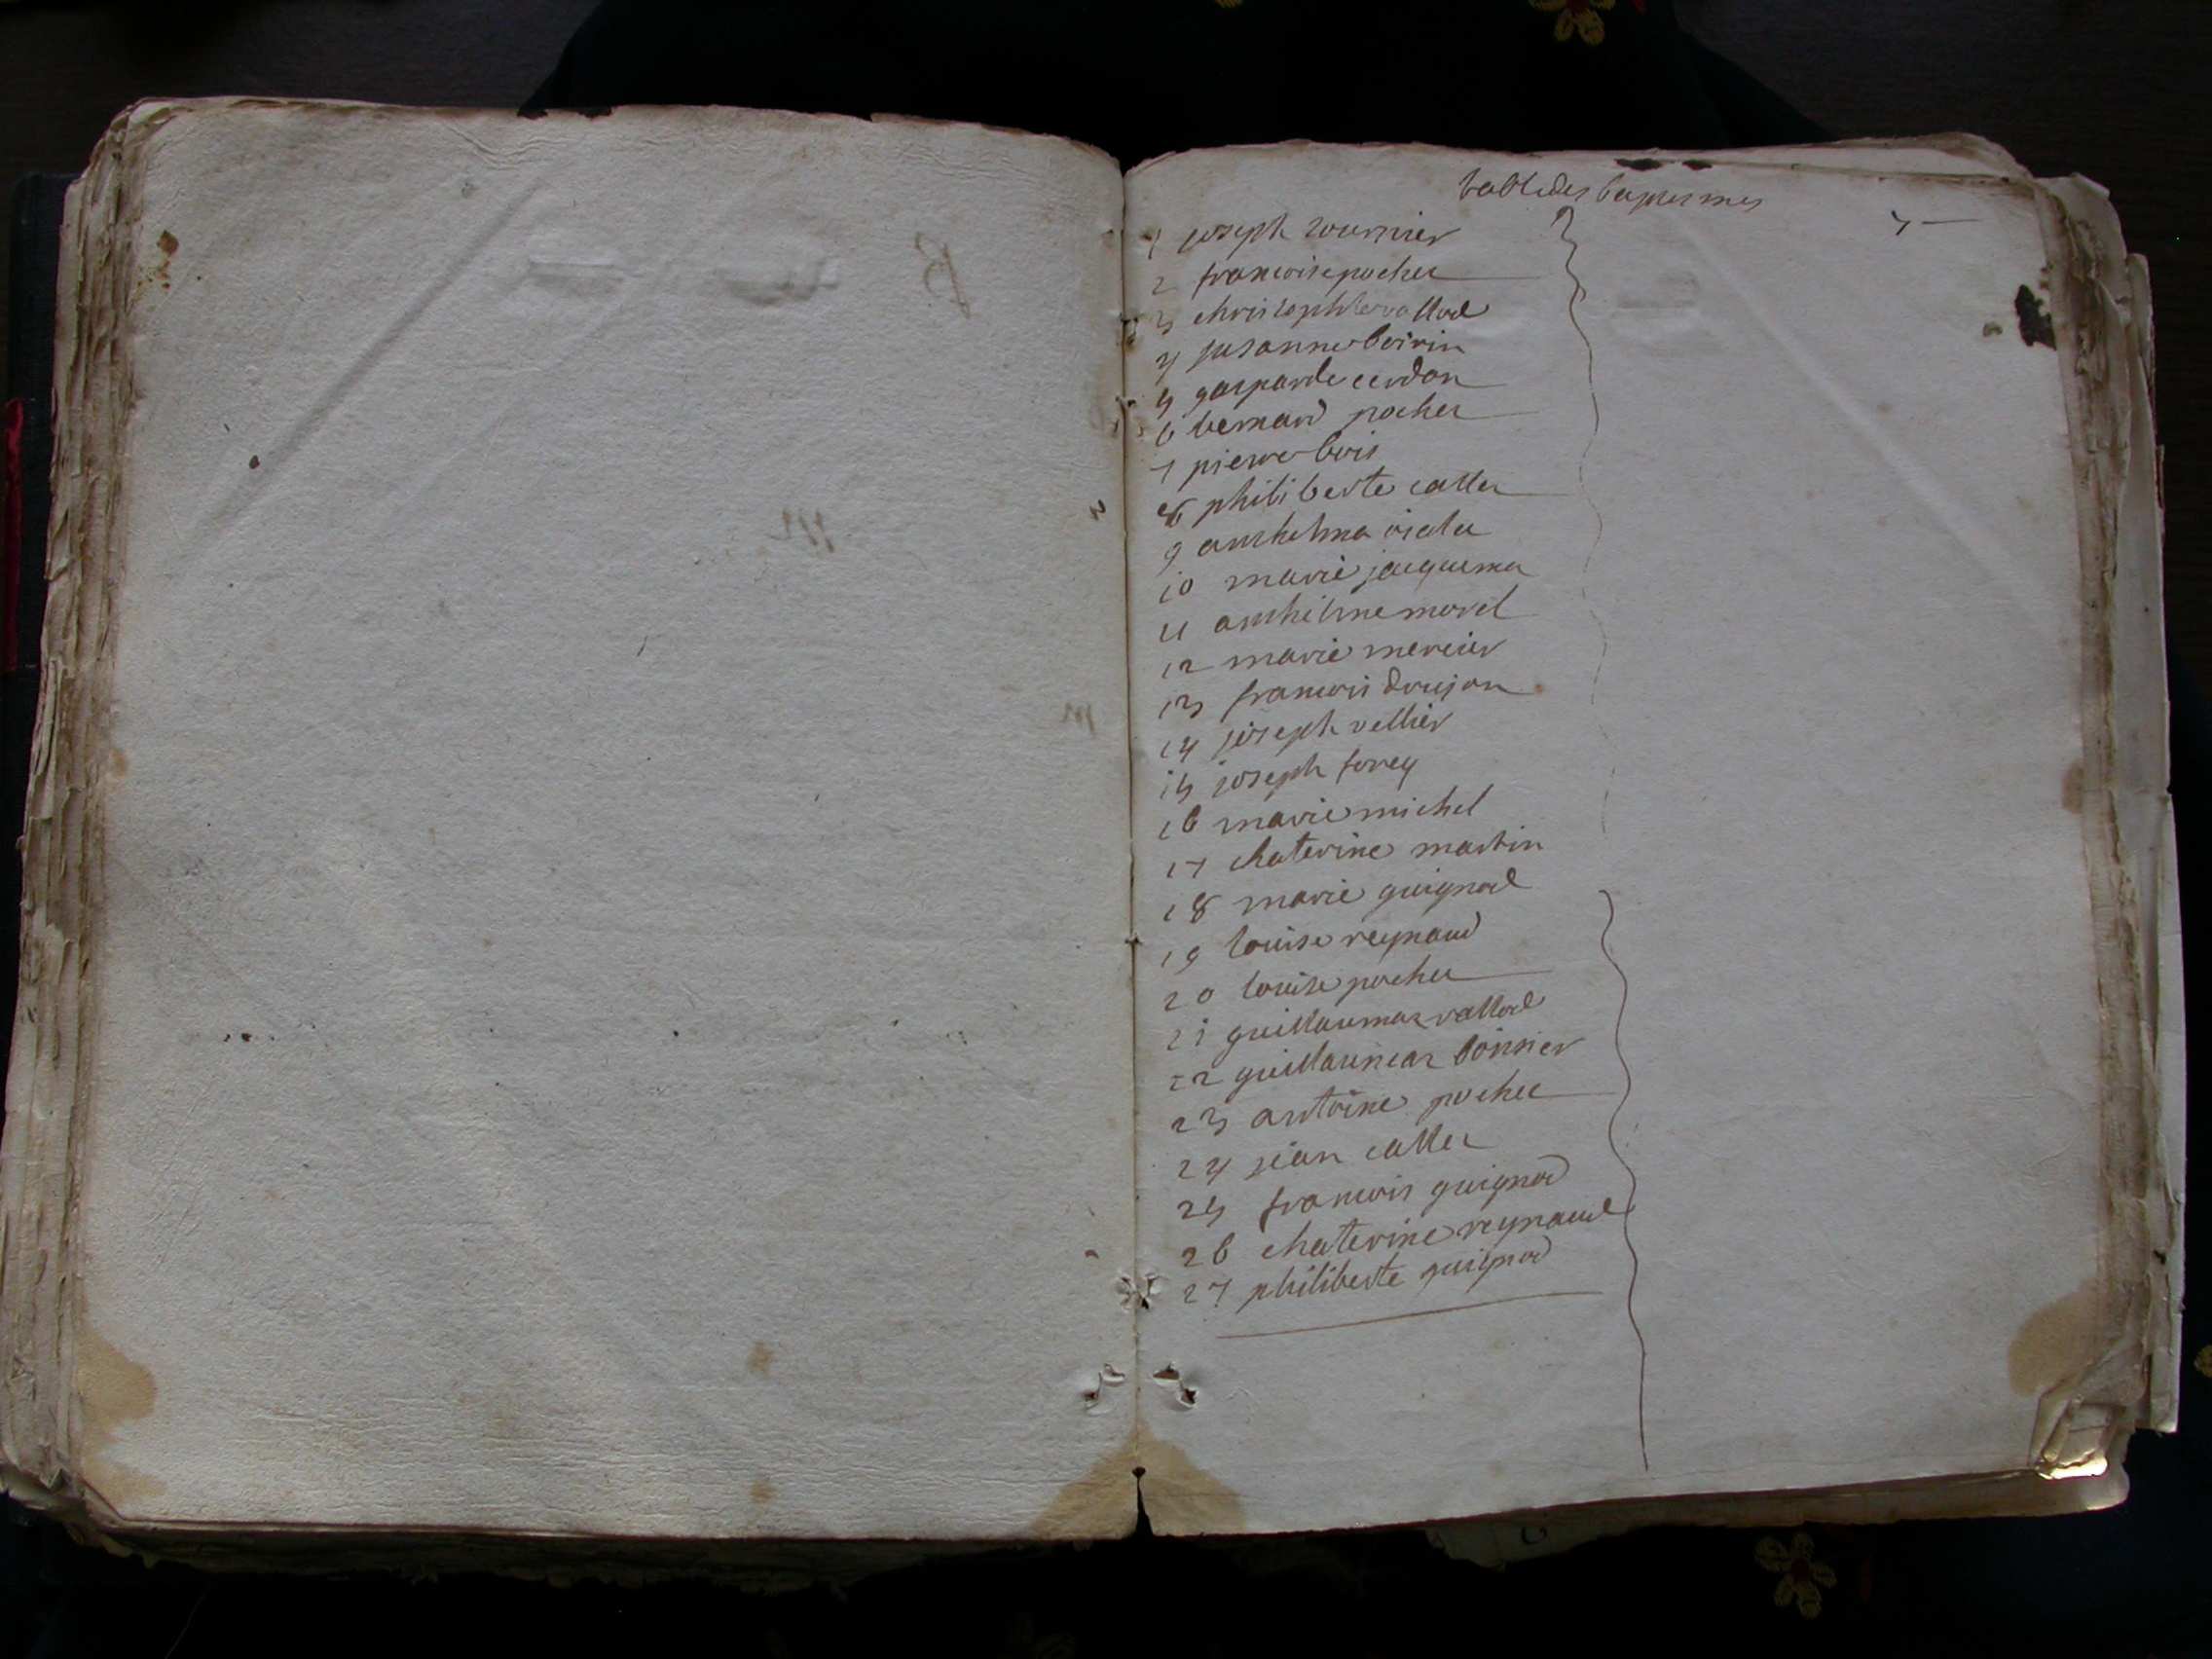 table des baptesmes
1 joseph tournier
2 francoise pochet
3 christophle vallod
4 susanne boirin
5 gasparde cerdon
6 bernard pochet
7 pierre bois
8 philiberte callet
9 anthelma
10 marie jacquemet
11 anthelme morel
12 marie mercier
13 francois doujon
14 joseph vellier
15 joseph forey
16 marie michel
17 chaterine martin
18 marie guignod
19 louise reynaud
20 louise pochet
21 guillaumaz vallod
22 guillaumaz
23 antoine pochet
24 jean callet
25 francois guignod
26 chaterine reynaud
27 philiberte guignod